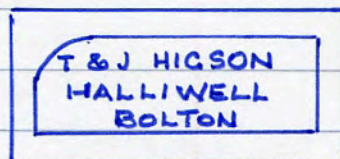 T & J HIGSON
HALLIWELL
BOLTON